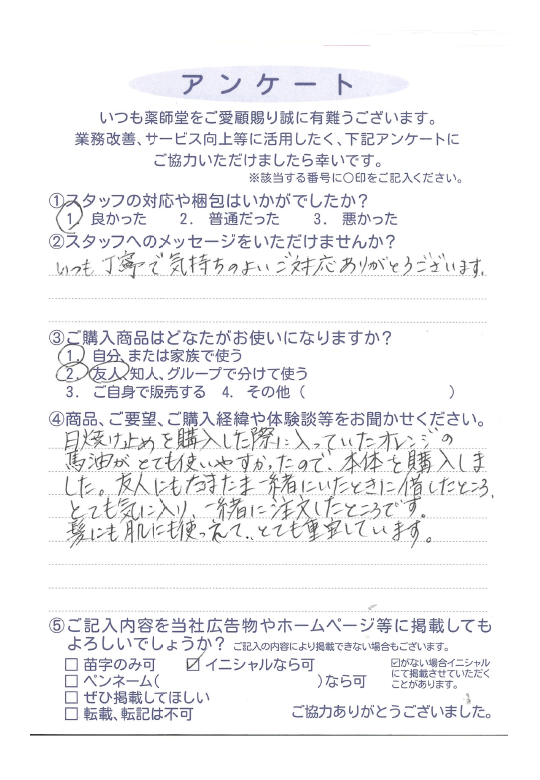 アンケート
いつも薬師堂をご愛顧賜り誠に有難うございます。
業務改善、サービス向上等に活用したく、下記アンケートに
ご協力いただけましたら幸いです。
※該当する番号に○印をご記入ください。
①スタッフの対応や梱包はいかがでしたか?
1. 良かった 2. 普通だった 3. 悪かった
②スタッフへのメッセージをいただけませんか?
いつも丁寧で気持ちのよいご対応ありがとうございます。
③ご購入商品はどなたがお使いになりますか?
1. 自分、または家族で使う
2. 友人、知人、グループで分けて使う
3. ご自身で販売する 4. その他( )
④商品、ご要望、ご購入経緯や体験談等をお聞かせください。
日焼け止めを購入した際に入っていたオレンジの
馬油がとても使いやすかったので、本体を購入しま
した。友人にもたまたま一緒にいたときに借したところ、
とても気に入り、一緒に注文したところです。
髪にも肌にも使えて、とても重宝しています。
⑤ご記入内容を当社広告物やホームページ等に掲載しても
よろしいでしょうか? ご記入の内容により掲載できない場合もございます。
□ 苗字のみ可 ☑ イニシャルなら可
□ ペンネーム( )なら可
□ ぜひ掲載してほしい
□ 転載、転記は不可
☑がない場合イニシャル
にて掲載させていただく
ことがあります。
ご協力ありがとうございました。